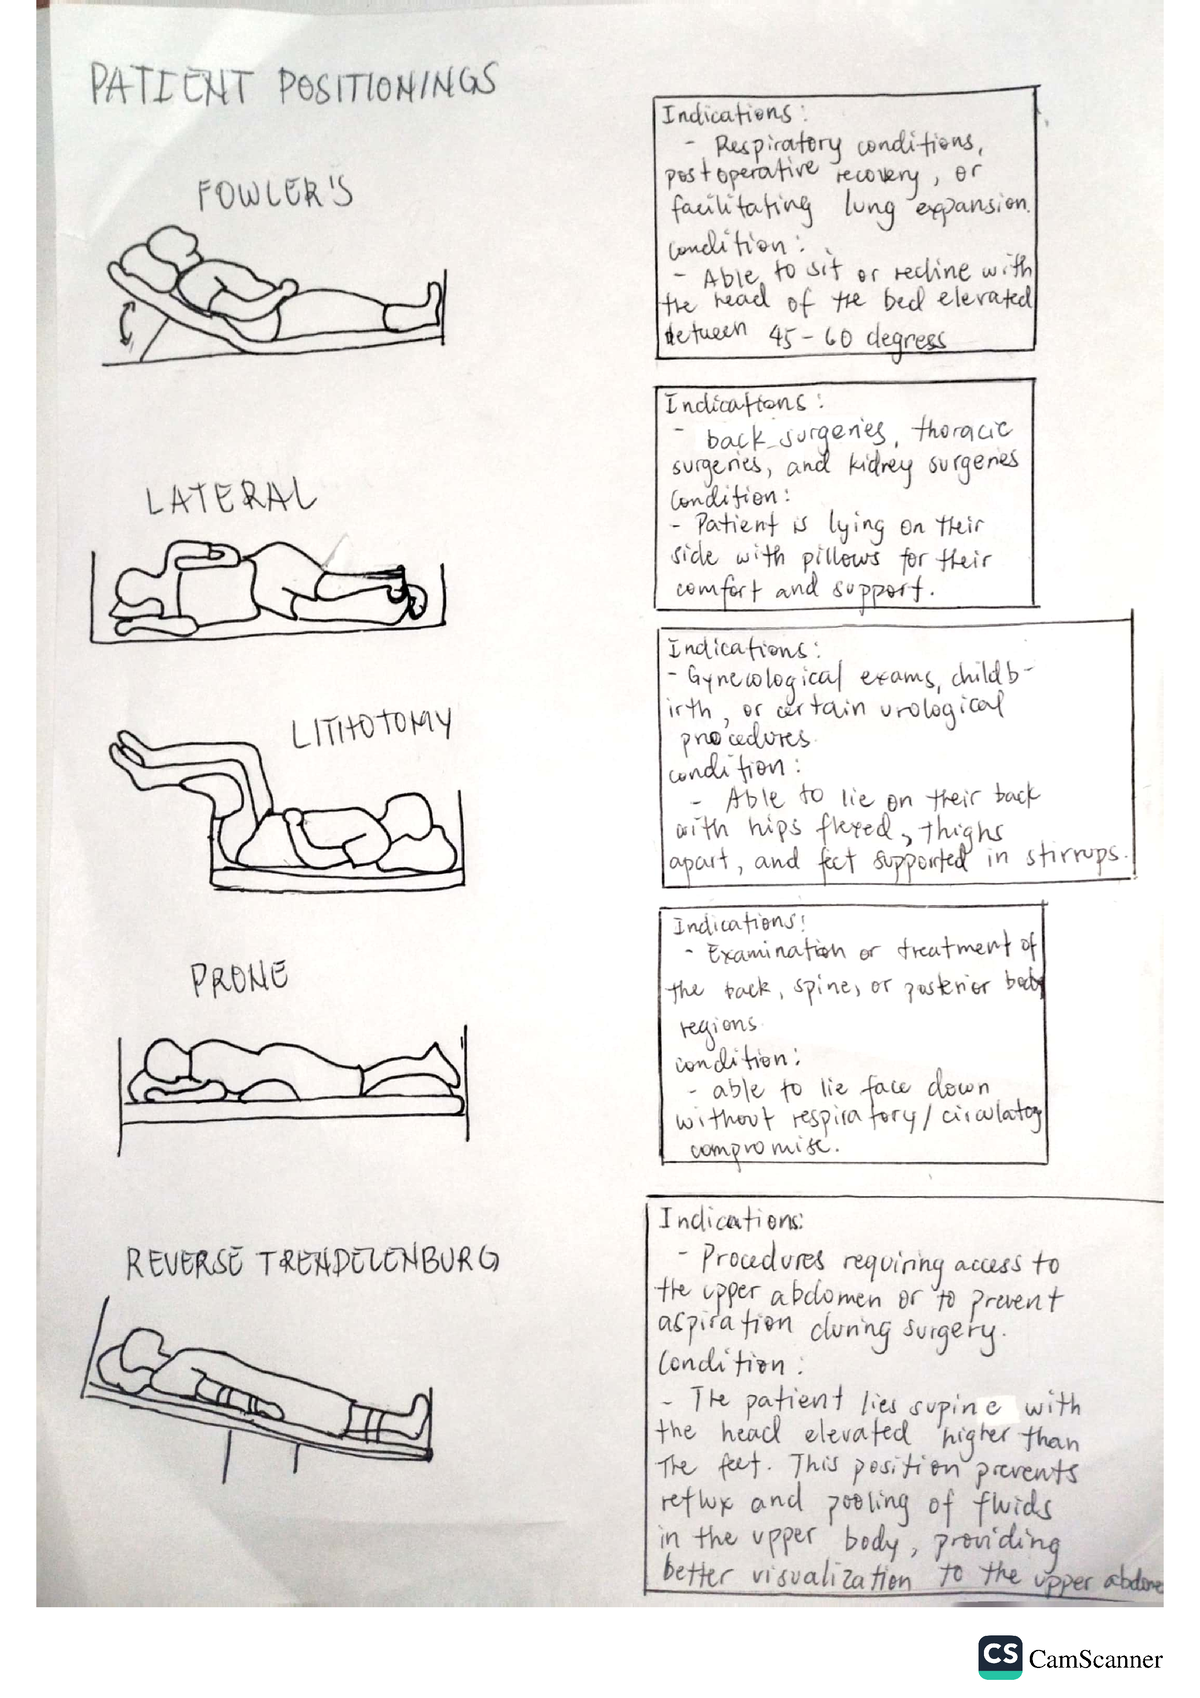 PATIENT POSITIONINGS
FOWLER'S
Indications:
- Respiratory conditions,
postoperative recovery, or
facilitating lung expansion.
condition:
- Able to sit or recline with
the head of the bed elevated
between 45-60 degress
LATERAL
Indications:
- back surgeries, thoracic
surgeries, and kidney surgeries
Condition:
- Patient is lying on their
side with pillows for their
comfort and support.
LITHOTOMY
Indications:
- Gynecological exams, childb-
irth, or certain urological
procedures.
condition:
- Able to lie on their back
with hips flexed, thighs
apart, and feet supported in stirrups.
PRONE
Indications:
- Examination or treatment of
the back, spine, or posterior body
regions.
condition:
- able to lie face down
without respiratory/circulatory
compromise.
REVERSE TRENDELENBURG
Indications:
- Procedures requiring access to
the upper abdomen or to prevent
aspiration during surgery.
Condition:
- The patient lies supine with
the head elevated higher than
The feet. This position prevents
reflux and pooling of fluids
in the upper body, providing
better visualization to the upper abdome
CS CamScanner